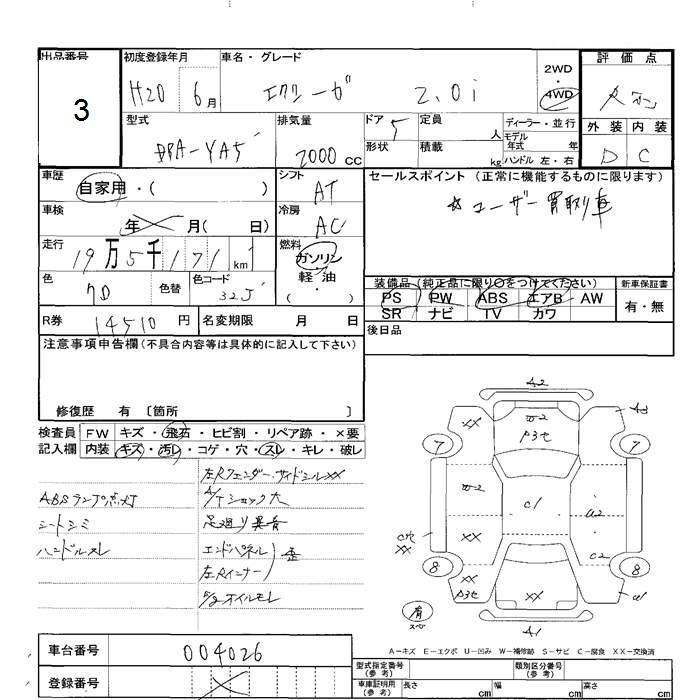 出品番号 初度登録年月 車名・グレード 2WD ・ 4WD 評価点
3 H20 6月 エクシーガ 2.0i
型式 排気量 ドア 5 定員 人 ディーラー・並行 外装 内装
DBA-YA5 2000 CC 形状 積載 kg モデル年式 年 ハンドル 左・右 D C
車歴 自家用・( ) シフト AT セールスポイント(正常に機能するものに限ります)
車検 年 月( 日) 冷房 AC ☆ユーザー買取車
走行 19万5千171km 燃料 ガソリン ・ 軽油 ( )
色 色替 色コード 32J 装備品(純正品に限り○をつけてください) 新車保証書
PS PW ABS エアB AW 有・無
SR ナビ TV カワ
R券 14510円 名変期限 月 日 後日品
注意事項申告欄(不具合内容等は具体的に記入して下さい)
修復歴 有 〔箇所 〕
検査員 FW キズ・飛石・ヒビ割・リペア跡・×要
記入欄 内装 キズ・汚れ・コゲ・穴・スレ・キレ・破レ
左Rフェンダー・サイドシルXX
ABSランプ点灯 A/Tショック大
シートシミ 足廻り異音
ハンドルスレ エンドパネル 歪
左Rインナー
オイルモレ
A2
A3
7 7
C1
XX XX
8 8
C2
XX
A1
A-キズ E-エクボ U-凹み W-補修跡 S-サビ C-腐食 XX-交換済
車台番号 004026 型式指定番号(参考) 類別区分番号(参考)
登録番号 車庫証明用(参考) 長さ cm 幅 cm 高さ cm